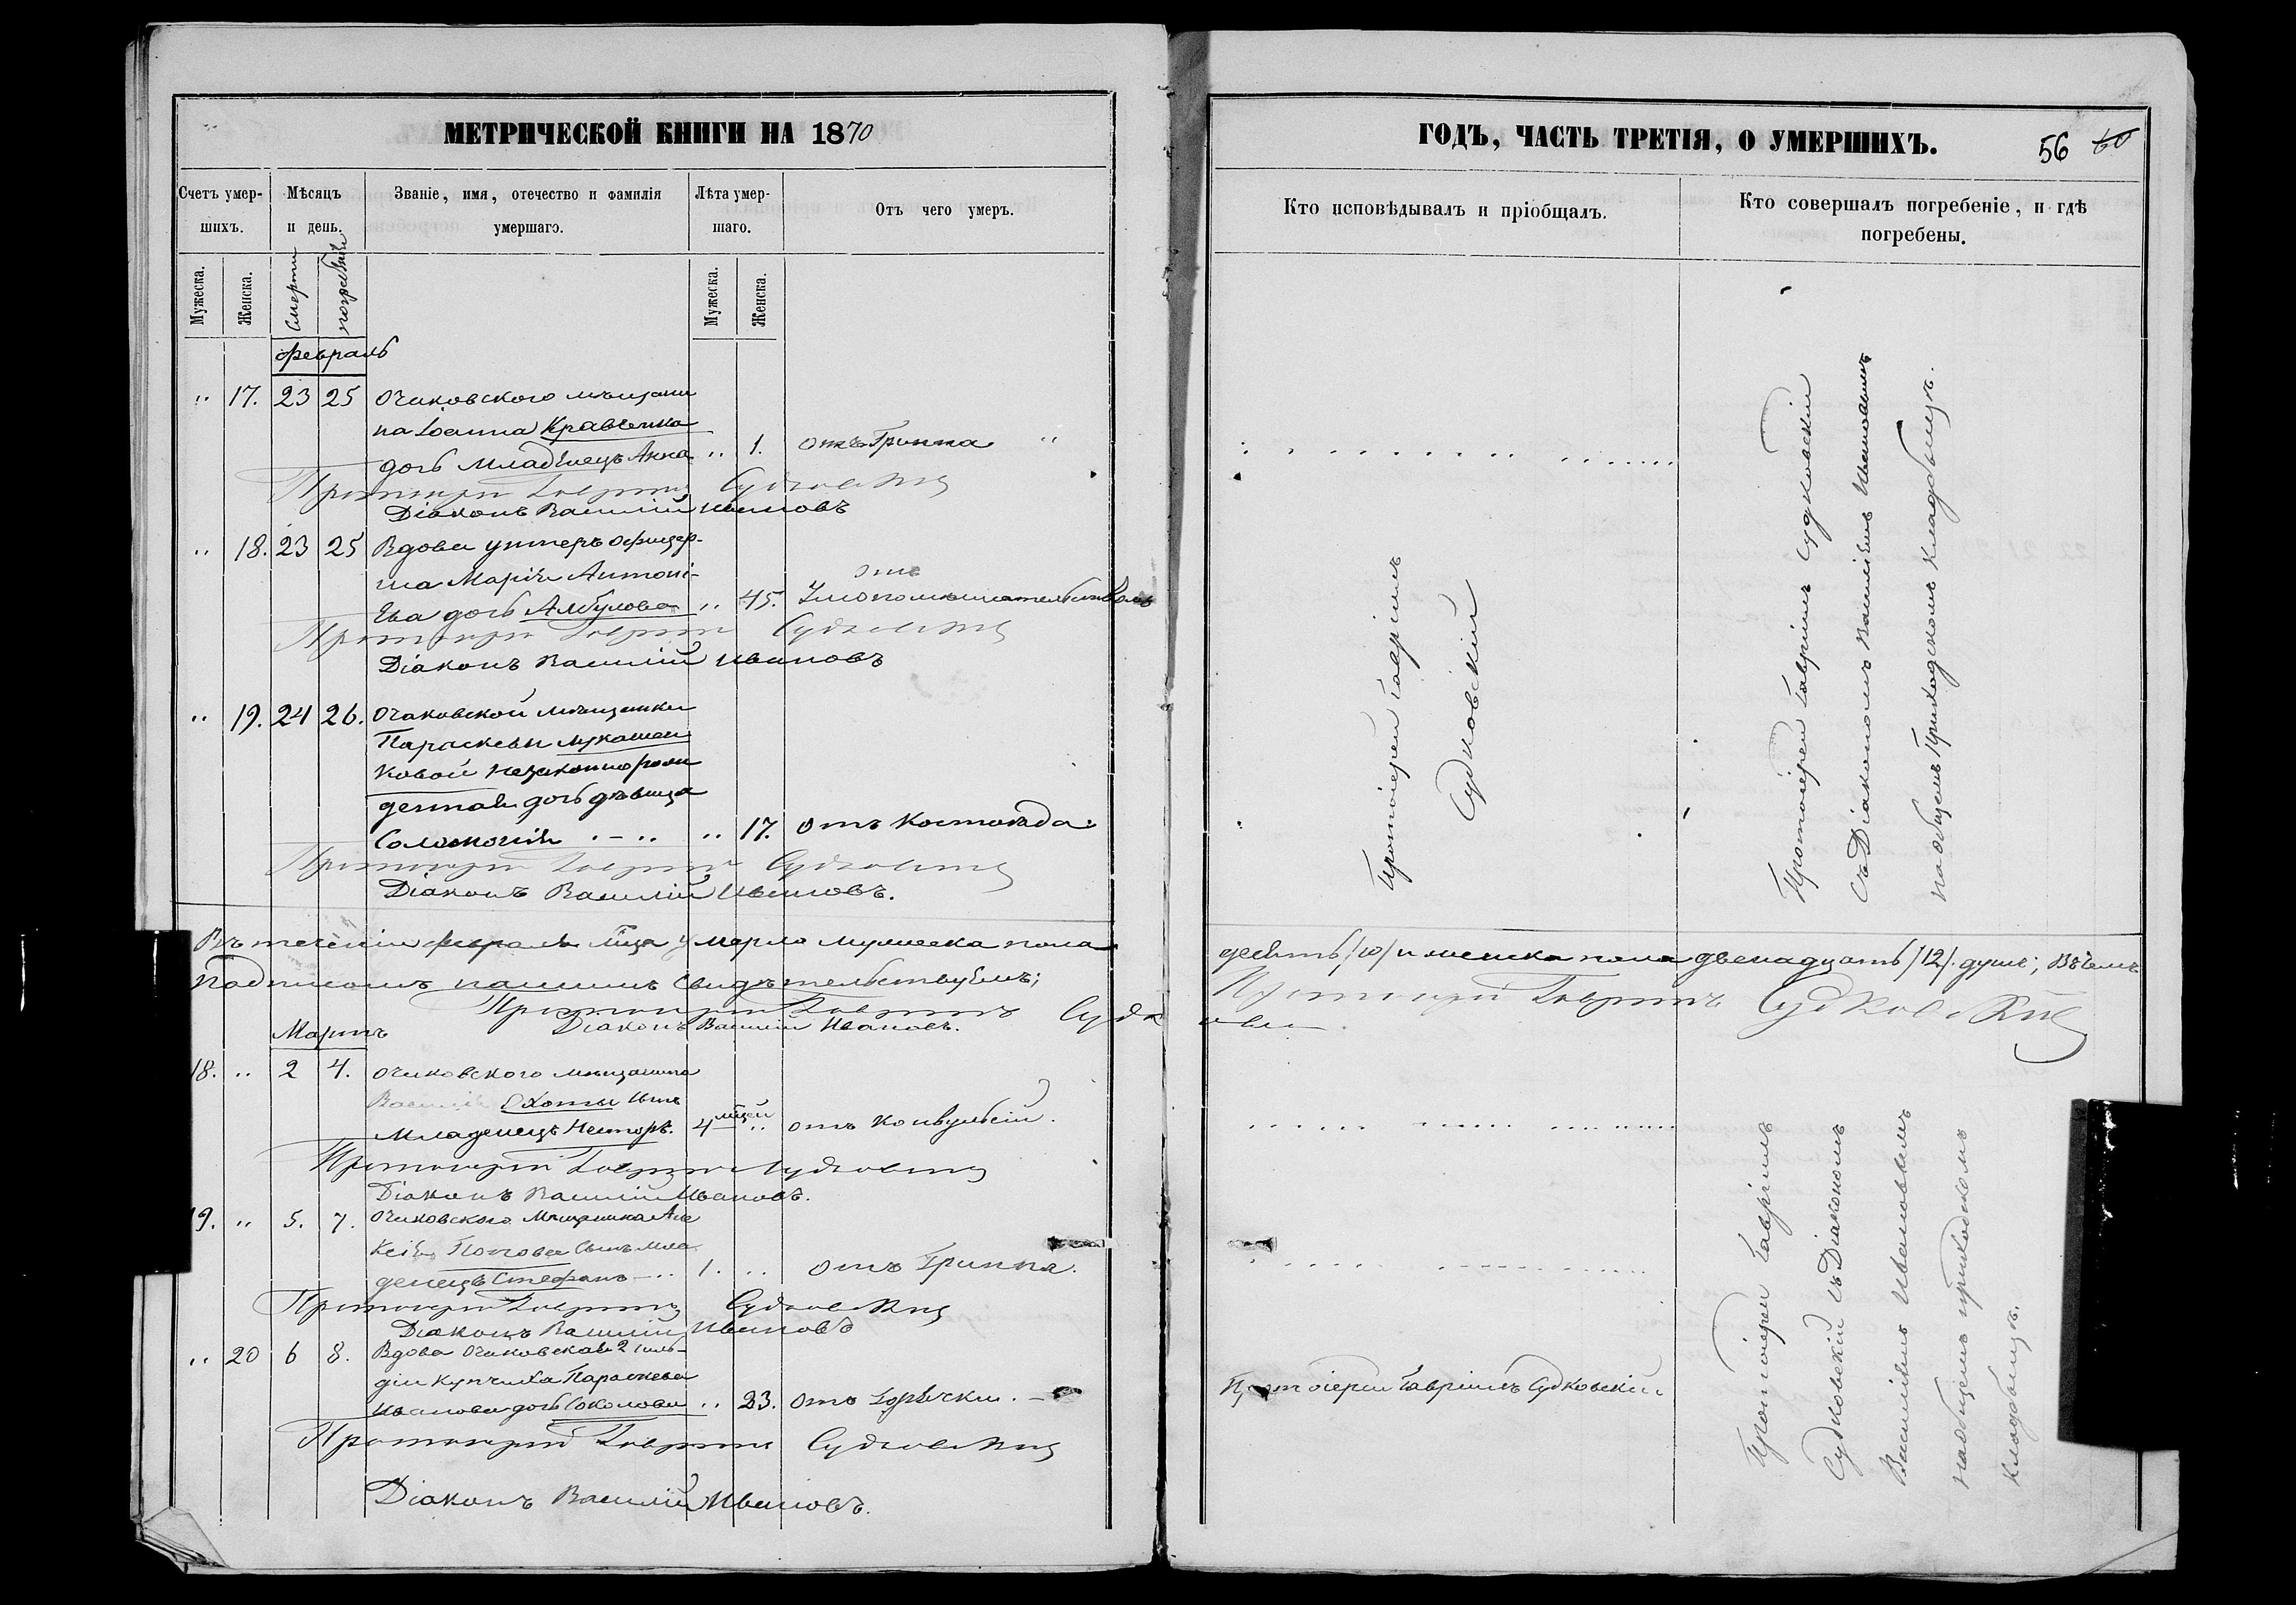 МЕТРИЧЕСКОЙ КНИГИ НА 1870
Счетъ умер-
шихъ.
Мѣсяцъ
и день.
Званіе, имя, отечество и фамилія
умершаго.
Лѣта умер-
шаго.
Отъ чего умеръ.
Мужеска.
Женска.
смерти
погребенія
Мужеска.
Женска.
февраль
" 17. 23 25 Очаковскаго мѣщани
на Іоанна Кравченка
дочь младенецъ Анна " 1. отъ Гриппа "
Протоіерей Гавріилъ Судковскій
Діаконъ Василій Ивановъ
" 18. 23 25 Вдова унтеръ офицер-
ша Марія Антоні-
ева дочь " 45. отъ
Протоіерей Гавріилъ Судковскій
Діаконъ Василій Ивановъ
" 19. 24 26. Очаковской мѣщанки
Параскевы Лукашен
ковой незаконнорож
денная дочь дѣвица
Соломонія " 17. отъ Костоѣда.
Протоіерей Гавріилъ Судковскій
Діаконъ Василій Ивановъ.
Въ теченіи февраля мца умерло мужеска пола
подписомъ нашимъ свидѣтельствуемъ;
Протоіерей Гавріилъ Судковскій
Діаконъ Василій Ивановъ.
Мартъ
18. " 2 4. Очаковскаго мѣщанина
Василія Охоты сынъ
младенецъ Несторъ. 4 мцей " отъ конвульсій.
Протоіерей Гавріилъ Судковскій
Діаконъ Василій Ивановъ.
19. " 5. 7. Очаковскаго мѣщанина Але
ксія Попова сынъ мла
денецъ Стефанъ 1. " отъ Гриппа.
Протоіерей Гавріилъ Судковскій
Діаконъ Василій Ивановъ
" 20 6 8. Вдова Очаковская 2 гиль-
діи купчиха Параскева
Иванова дочь Соколова " 23. отъ Горячки.
Протоіерей Гавріилъ Судковскій
Діаконъ Василій Ивановъ.
ГОДЪ, ЧАСТЬ ТРЕТІЯ, О УМЕРШИХЪ.
56 60
Кто исповѣдывалъ и пріобщалъ.
Кто совершалъ погребеніе, и гдѣ
погребены.
Протоіерей Гавріилъ
Судковскій
Протоіерей Гавріилъ Судковскій
съ Діакономъ Василіемъ Ивановымъ
на общемъ приходскомъ кладбищѣ.
десять /10/ и женска пола двенадцать /12/. душъ; въ чемъ
Протоіерей Гавріилъ Судковскій
Протоіерей Гавріилъ Судковскій
Протоіерей Гавріилъ
Судковскій съ Діакономъ
Василіемъ Ивановымъ
на общемъ приходскомъ
кладбищѣ.